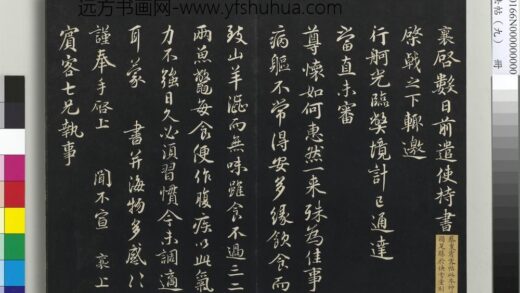 远方书画网-www.yfshuhua.com
襄啓數日前遣使持書
棨戟之下輒邀
行舸光臨弊境計已通達
當直未審
尊懷如何惠然一來殊為佳事
病軀不常得安多緣飲食而
致山羊澁而無味雖食不過三二
兩魚鱉每食便作腹疾以此氣
力不強日久必須習慣今未調適
耳蒙 書并海物多感〻
謹奉手啓上 聞不宣 襄上
賓客七兄執事
帖（九） 冊
0166N000000000